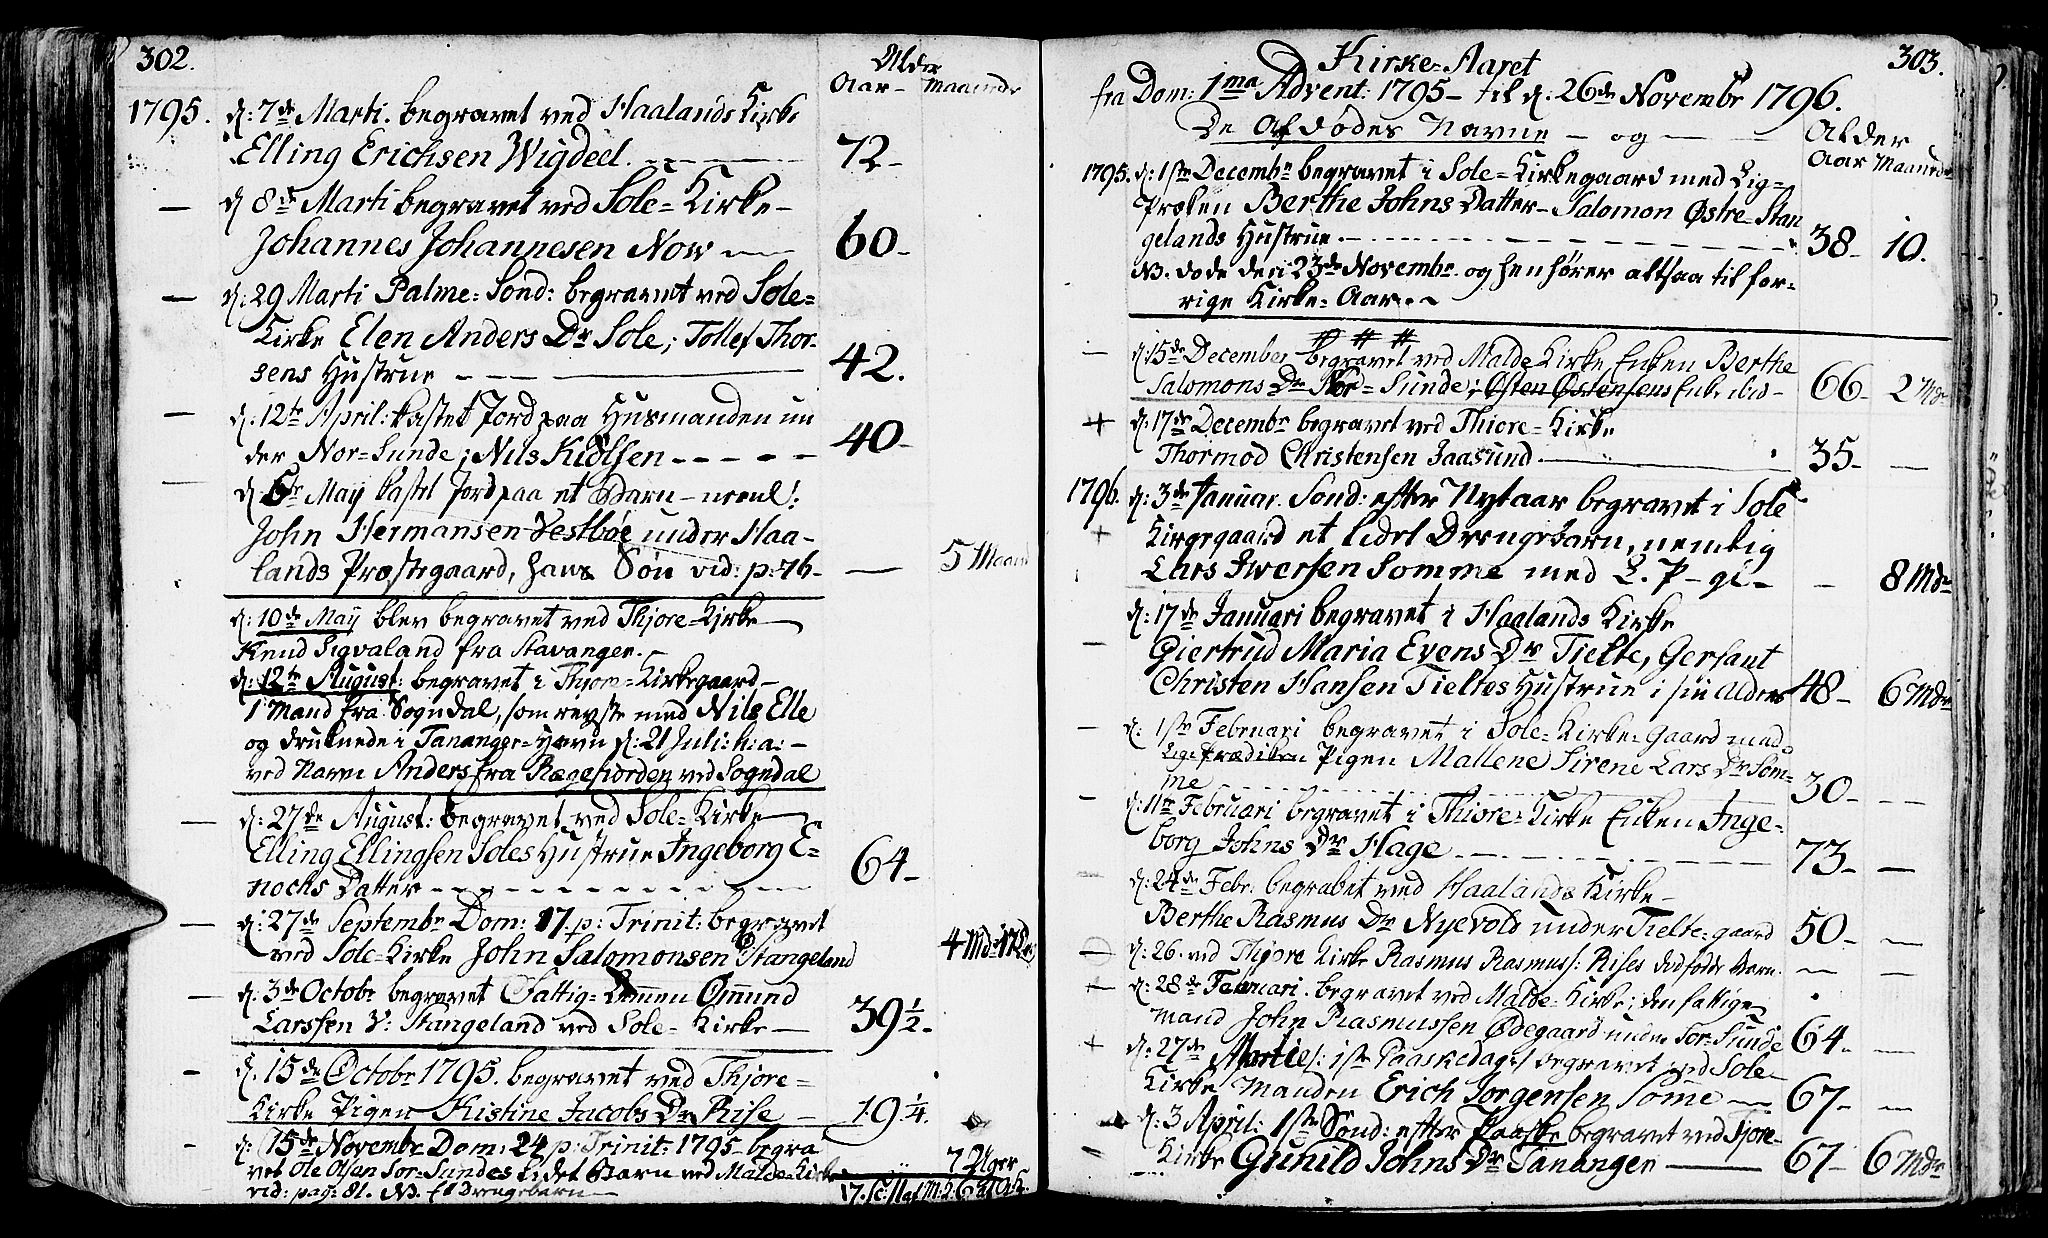 302.
Alder
Aar- Maaneder
1795. d: 7de Marti. begravet ved Haalands Kirke
Elling Erichsen Wigdeel. 72-
d 8de Marti begravet ved Sole-Kirke-
Johannes Johannesen Now 60-
d: 29 Marti Palme-Sond: begravet ved Sole=
Kirke Elen Anders Dr Sole; Tollef Thor-
sens Hustrue 42.
d: 12te April: kastet Jord paa Husmanden un
der Nor-Sunde; Nils Kiölsen 40-
d: 6te Maij kastet Jord paa et Barn-
John Hermansen Vestböe under Haa-
lands Præstegaard, hans Sön vid: p: 76- — 5 Maan
d: 10de Maij blev begravet ved Thjore-Kirke
Knud Sigvaland fra Stavanger.-
d: 12te August: begravet i Thjore-Kirkegaard-
1 Mand fra Sogndal, som reyste med Nils Elle
og druknede i Tananger-Havn d: 21 Juli: h: a: -
ved Navn Anders fra Rægefiorden ved Sogndal
d: 27de August: begravet ved Sole-Kirke
Elling Ellingsen Soles Hustrue Ingeborg E=
nochs Datter 64-
d: 27de Septembr Dom: 17. p: Trinit: begravet
ved Sole-Kirke John Salomonsen Ö Stangeland 4 Md:
d. 3de Octobr begravet Fattig-Lemmen Ömund
Larssen V: Stangeland ved Sole-Kirke 39½-
d. 15de Octobr 1795. begravet ved Thjore=
Kirke Pigen Kistine Jacobs Dr Rise 19¼.
d: 15de Novembr Dom: 24 p: Trinit: 1795- begra
vet Ole Olsen Sör-Sundes lidet Barn ved Malde-Kirke 7 Uger
vid: pag: 81. NB. et Drengebarn
303.
Kirke-Aaret
fra Dom: 1ma Advent: 1795- til d: 26de Novembr 1796.
De Afdödes Navne - og -
Alder
Aar Maaneder
1795. d: 1ste Decembr begravet i Sole-Kirkegaard med Lig=
Præken Berthe Johns Datter- Salomon Östre-Stan
gelands Hustrue. 38- 10.
NB. döde den 23de Novembr. og henhörer altsaa til for-
rige Kirke-Aar
d: 15de December begravet ved Malde Kirke Enken Berthe
Salomons Dr Nor-Sunde; Östen Östensens Enke ibid- 66- 2 Mdr
d: 17de Decembr begravet ved Thiore-Kirke
Thormod Christensen Jaasund. 35- —
1796. d: 3de Januar. Sond: efter Nytaar begravet i Sole
Kirgegaard et lidet Drengebarn, nemlig
Lars Iwersen Somme med L. P- gi- - 8 Mdr
d: 17de Januari begravet i Haalands Kirke
Giertrud Maria Evens Dr Tielte, Gersant
Christen Hansen Tieltes Hustrue i sin Alder 48- 6 Mdr
d: 1ste Februari begravet i Sole-Kirke-Gaard med
Lige Prædiken Pigen Mallene Sirene Lars Dr Som=
me 30- —
d: 11te Februari begravet i Thiore-Kirke Enken Inge=
borg Johns Dr Hage 73- —
d: 24de Febr: begravet ved Haalands Kirke-
Berthe Rasmus Dr Nyevold under Tielte-gaard 50- —
d: 26. ved Thjore Kirke Rasmus Rasmuss: Rises dödfödde Barn. — —
d: 28de Februari. begravet ved Malde-Kirke; den fattige
Mand John Rasmussen Ödegaard under Sör-Sunde 64- —
d: 27de Martie: 1ste Paaskedag begravet ved Sole
Kirke Manden Erich Jorgensen Sömme 67- —
d: 3 April: 1ste Sönd: efter Paaske begravet ved Tjore-
Kirke Gunild Johns Dr Tananger 67- 6 Mdr